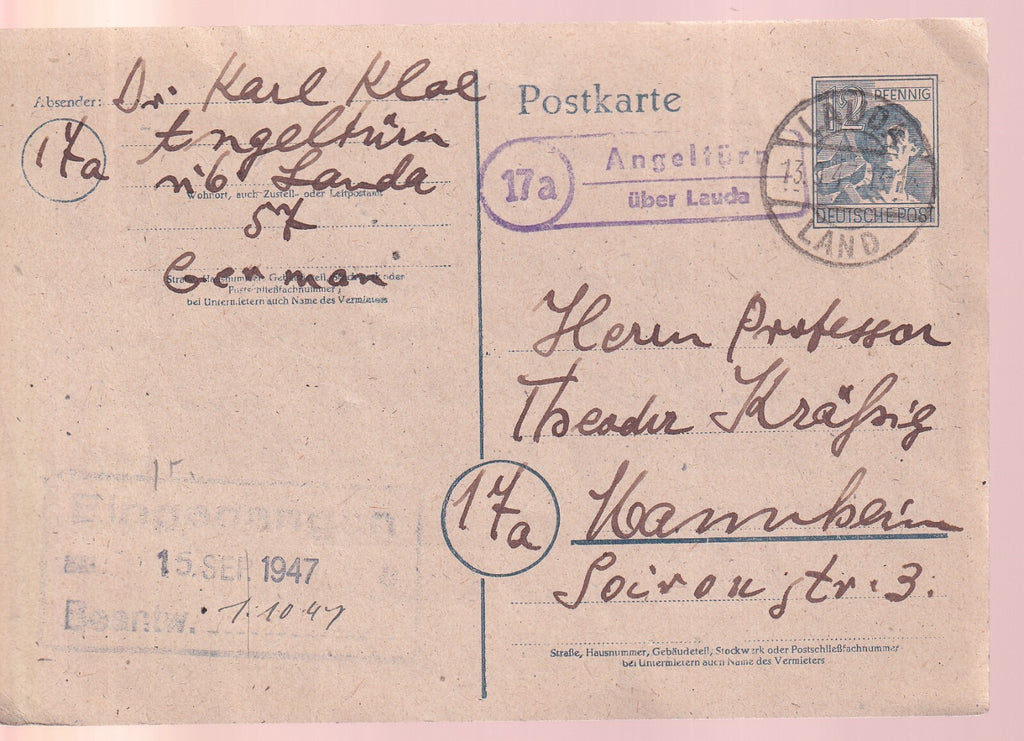 Absender: Dr. Karl Kloe
17a Angeltürn
üb Lauda
Wohnort, auch Zustell- oder Leitpostamt
57
German
Straße, Hausnummer, Gebäudeteil, Stockwerk oder
Postschließfachnummer;
bei Untermietern auch Name des Vermieters
Postkarte
17a
Angeltürn
über Lauda
12 PFENNIG
DEUTSCHE POST
LAND
13.
Herrn Professor
Theodor Kräßig
17a Mannheim
Soironstr. 3.
Straße, Hausnummer, Gebäudeteil, Stockwerk oder Postschließfachnummer
bei Untermietern auch Name des Vermieters
Eingegangen
am 15. SEP. 1947
Beantw. 1.10.47